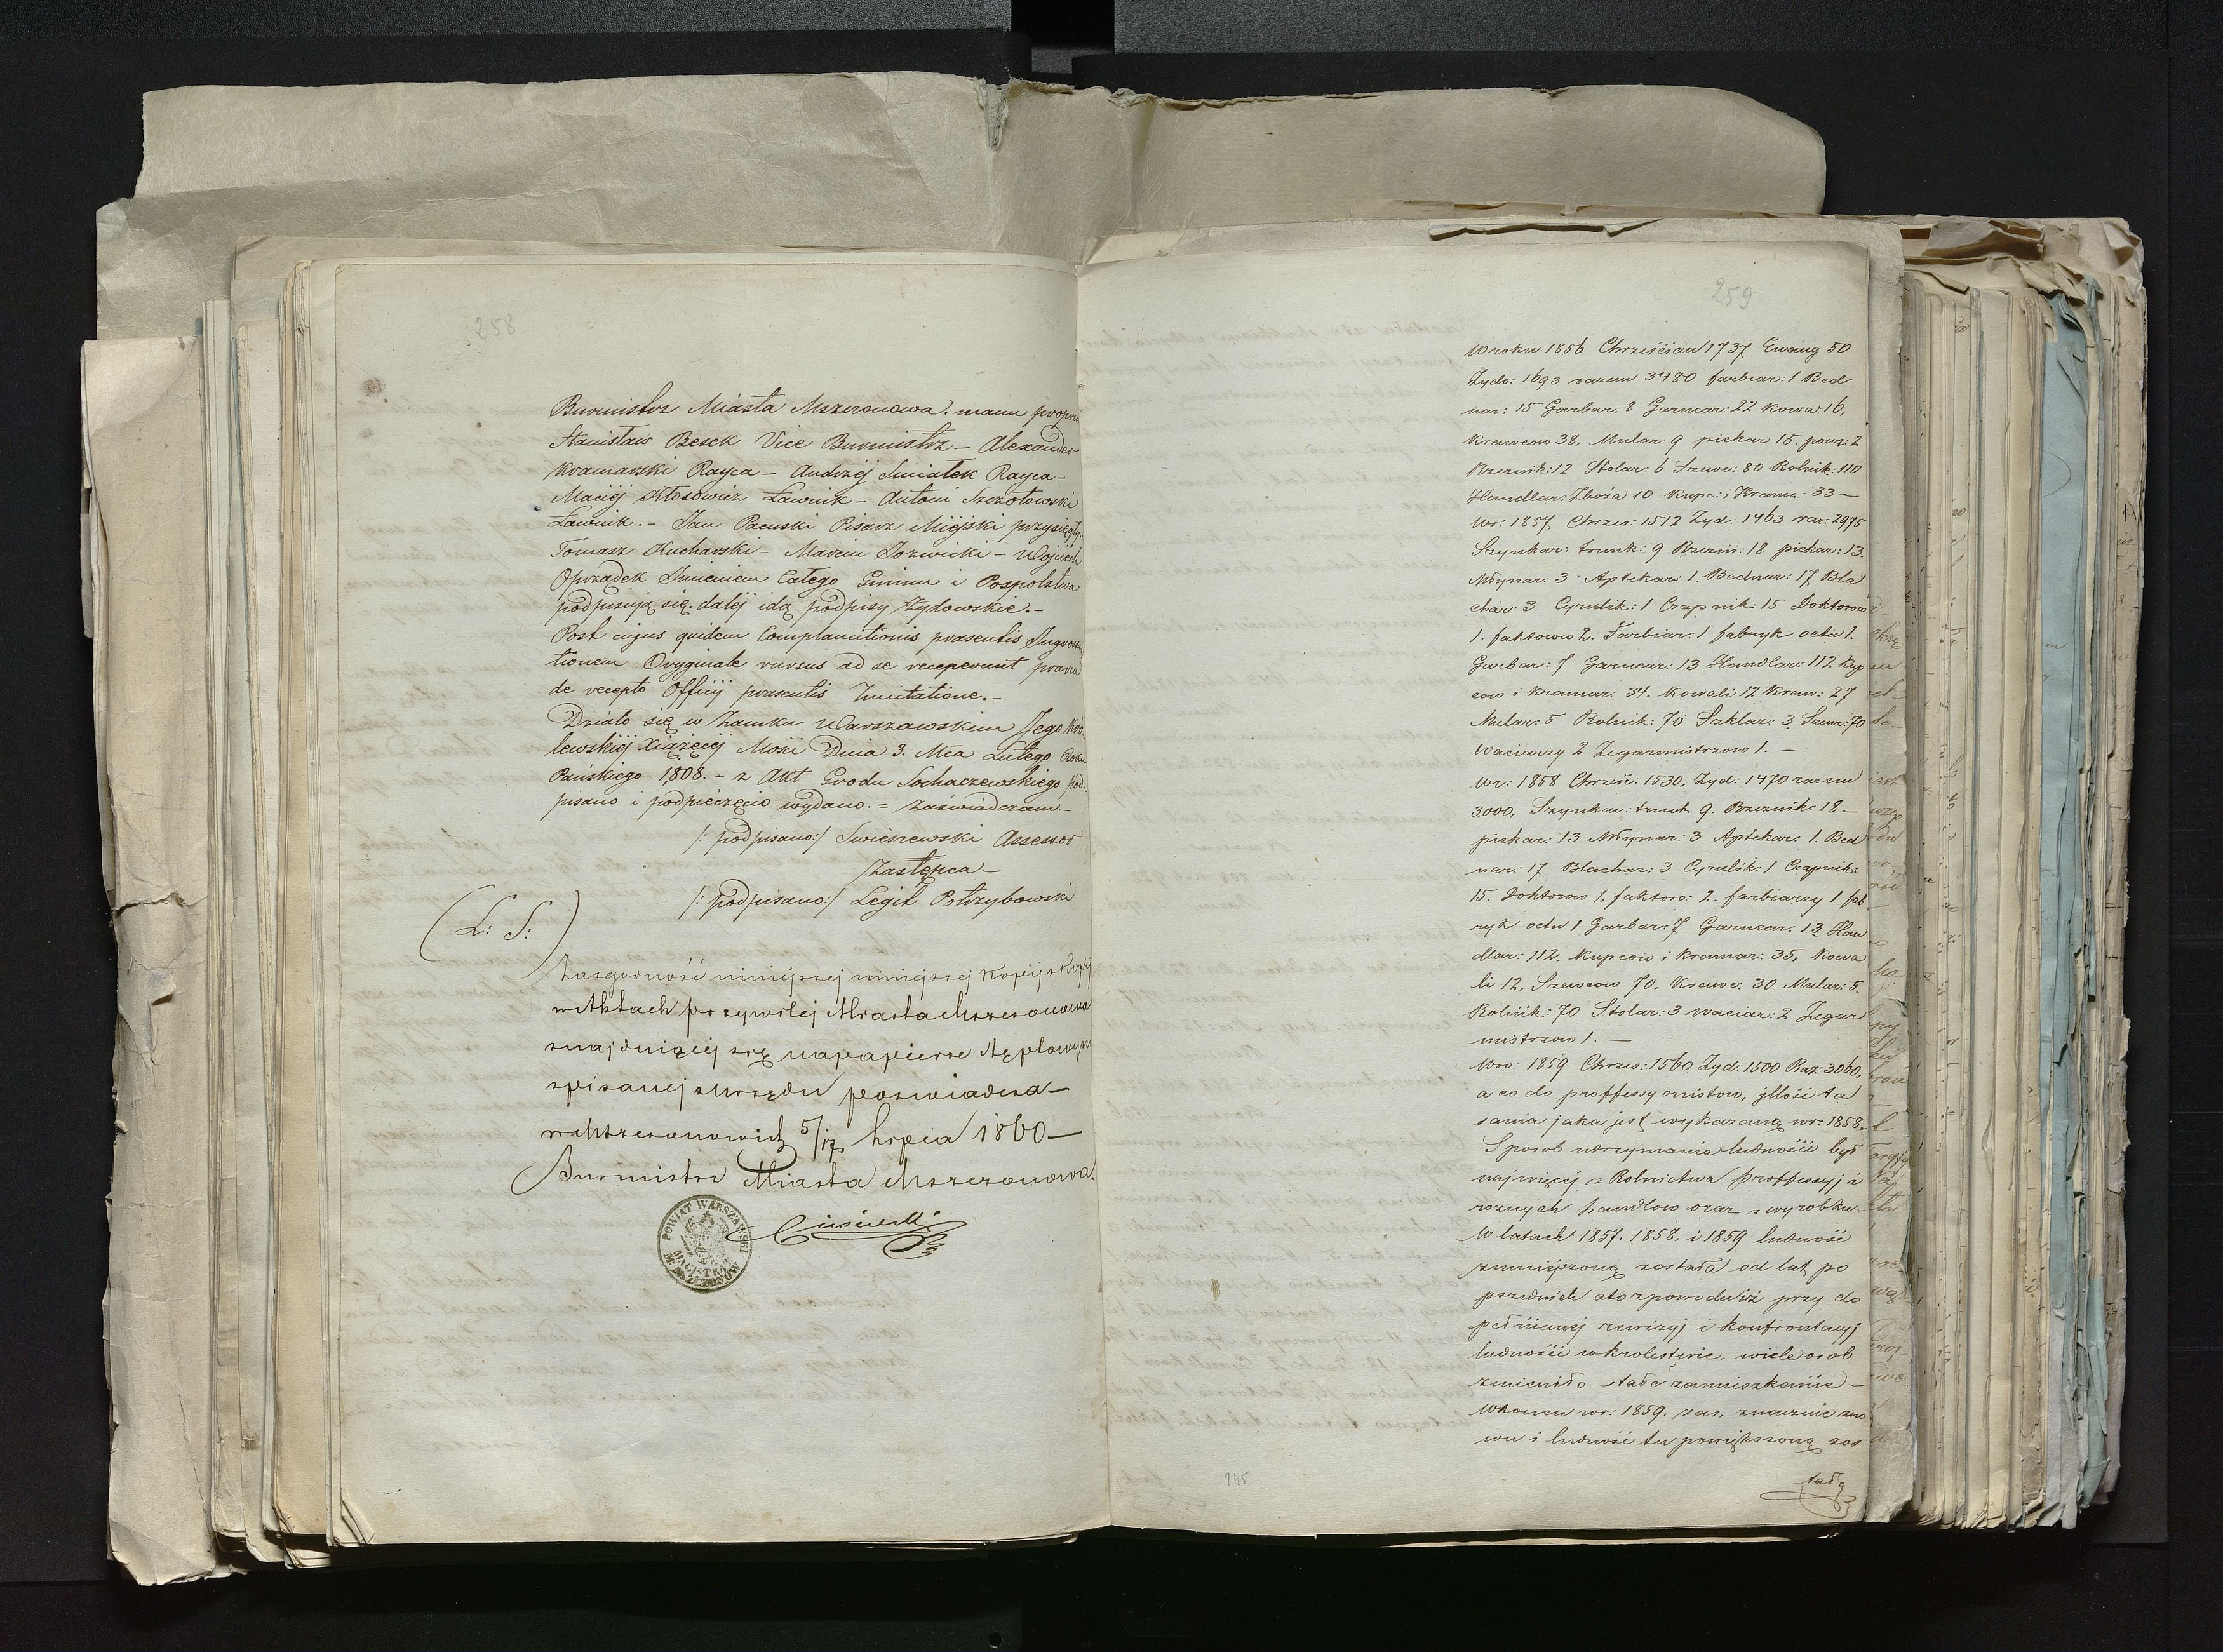 258
Burmistrz Miasta Mszczonowa. manu propria
Stanisław Besek Vice Burmistrz – Alexander
Kramarski Rayca – Andrzej Swiatek Rayca –
Maciéj Kłosowicz Ławnik – Antoni Szczotowski
Ławnik. – Jan Pacuski Pisarz Miéjski przysięgły.
Tomasz Kucharski – Marcin Jozwicki – Wojciech
Oprządek Imieniem Całego Gminu i Pospolstwa
podpisują się. daléj idą podpisy Żydowskie. –
Post cujus quidem Complanationis prasentis
tionem Oryginale rursus ad se receperunt
de recepto Officij prasentis –
Działo się w Zamku Warszawskim Jego Kró
lewskiéj Xiążęcéj Mości Dnia 3. Mca Lutego Roku
Pańskiego 1808. – z Akt Grodu Sochaczewskiego pod
pisano i podpieczęcio wydano. = Zaświadczam –
/: podpisano:/ Swieszewski Assessor
Zastępca –
/: podpisano:/ Legit Potrzybowski
(L: S:)
Zazgodność niniejszej winiejszej Kopij z Kopij
w Aktach przywilej Miasta Mszczonowa
znajduiącéj się napapierze stęplowym
spisanej z Urzędu poswiadcza –
w Mszczonowie 5/17 lipca 1860 –
Burmistrz Miasta Mszczonowa.
POWIAT WARSZAWSKI
MAGISTRAT
M. MSZCZONOW
259
W roku 1856 Chrześcian 1737 Ewang 50
Żydo: 1693 razem 3480 farbiar: 1 Bed
nar: 15 Garbar: 8 Garncar: 22 Kowa: 16,
Krawcow 38, Mular: 9 piekar 15. powr: 2
Rzeznik: 12 Stolar: 6 Szewc: 80 Rolnik: 110
Handlar: Zboża 10 Kupc: i Kram: 33 –
Wr: 1857 Chrzes: 1512 Żyd: 1463 raz: 2975
Szynkar: trunk: 9 Rzezni: 18 piekar: 13.
Młynar: 3 Aptekar: 1. Bednar: 17 Bla
char: 3 Cyrulik: 1 Czapnik: 15 Doktorow
1. faktorow 2. Farbiar: 1 fabryk octu 1.
Garbar: 7 Garncar: 13 Handlar: 112 Kup
cow i kramar: 34. Kowali 12 Kraw: 27
Mular: 5 Rolnik: 70 Szklar: 3 Szewc: 70
Waciarzy 2 Zegarmistrzow 1. –
Wr: 1858 Chrześ: 1530, Żyd: 1470 razem
3000, Szynkar: trunk 9. Rzeznik: 18 –
piekar: 13 Młynar: 3 Aptekar: 1. Bed
nar: 17 Blachar: 3 Cyrulik: 1 Czapnik:
15. Doktorow 1, faktoro: 2. farbiarzy 1 fab
ryk octu 1 Garbar: 7 Garncar: 13 Han
dlar: 112. Kupcow i Kramar: 35, Kowa
li 12, Szewcow 70. Krawc: 30. Mular: 5.
Rolnik: 70 Stolar: 3 waciar: 2 Zegar
mistrzow 1. –
Wro: 1859 Chrzes: 1560 Żyd: 1500 Raz: 3060,
a co do proffessyonistow, jllość ta
sama jaka jest wykazaną wr: 1858 –
Sposob utrzymania ludności był
najwięcéj z Rolnictwa proffessyj i
roznych handlow oraz z wyrobku –
W latach 1857. 1858. i 1859 ludność
zmniejszoną została od lat po
przednich a to z powodu iż przy do
pełnianéj rewizyj i konfrontacyj
ludności w krolestwie, wiele osob
zmieniło stałe zamieszkanie –
Wkoncu wr: 1859. zas, znacznie zno
wu i ludność tu powiększoną zos
tałą
145